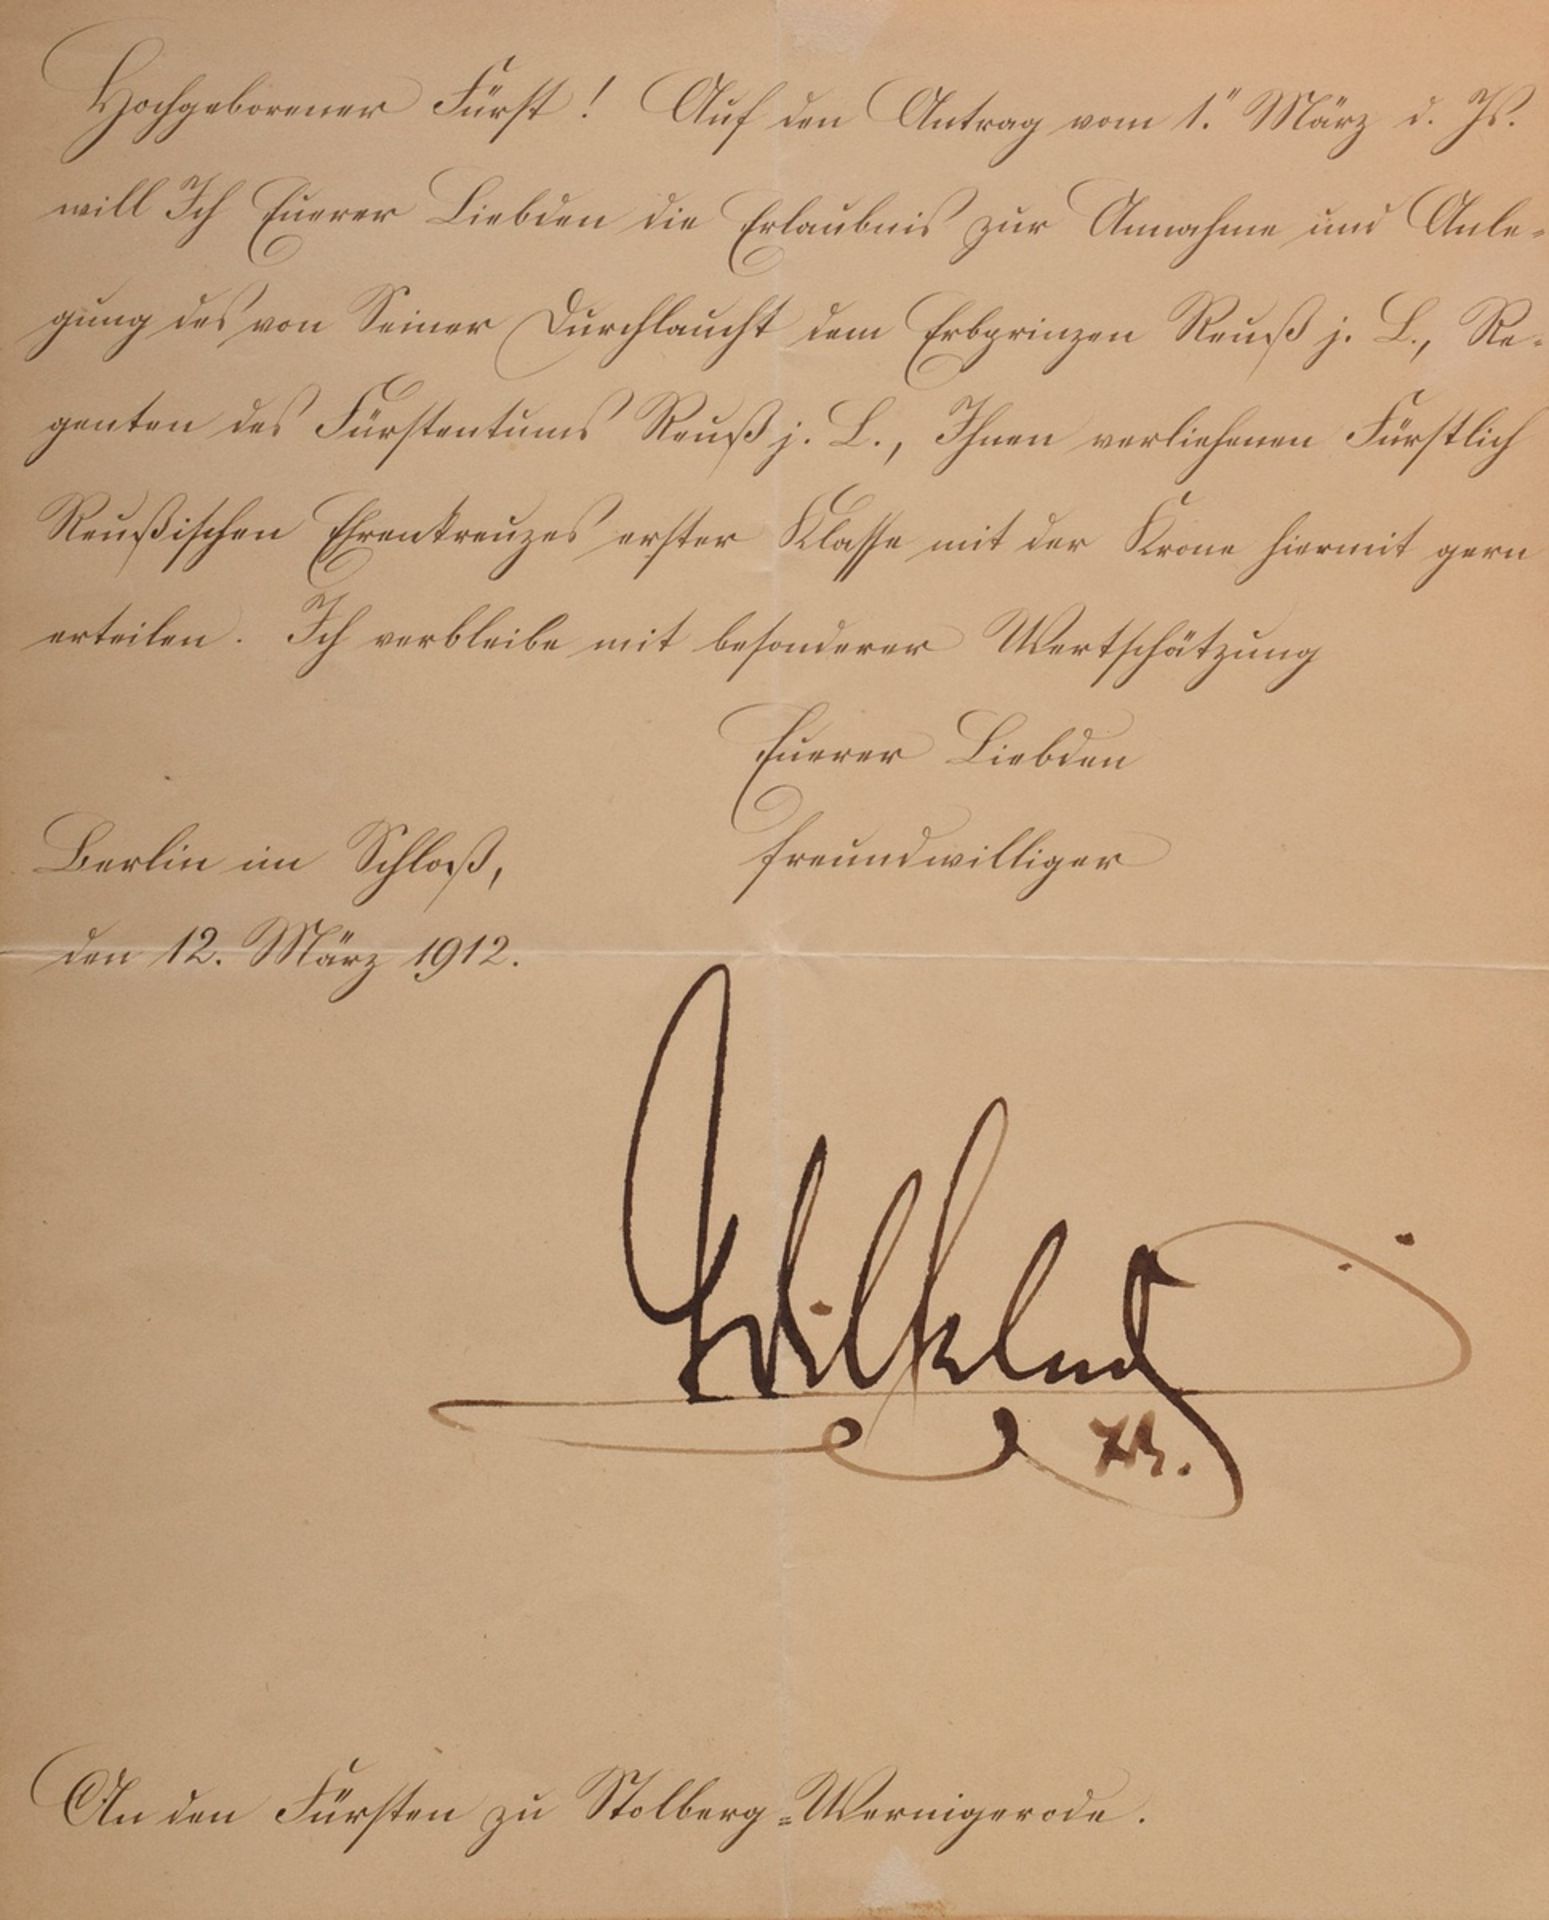 Hochgeborener Fürst! Auf den Antrag vom 1.ᵗᵉⁿ März d. Js.
will Ich Euerer Liebden die Erlaubnis zur Annahme und Anle-
gung des von Seiner Durchlaucht dem Erbprinzen Reuß j. L., Re-
genten des Fürstentums Reuß j. L., Ihnen verliehenen Fürstlich
Reußischen Ehrenkreuzes erster Klasse mit der Krone hiermit gern
erteilen. Ich verbleibe mit besonderer Wertschätzung
Euerer Liebden
freundwilliger
Berlin im Schloß,
den 12. März 1912.
Wilhelm
I.R.
An den Fürsten zu Stolberg-Wernigerode.